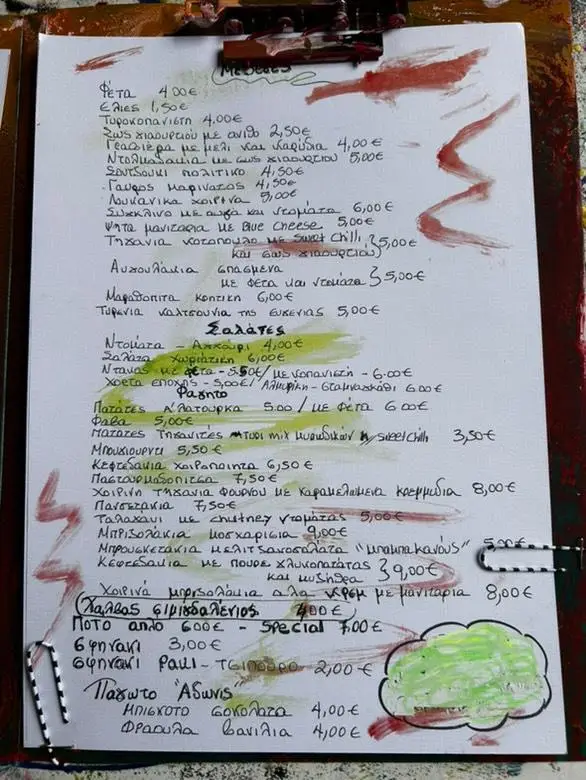 Μεζέδες
Φέτα 4.00€
Ελιές 1,50€
Τυροκοπανιστη 4,00€
Σως γιαουρτιου με ανιθο 2,50€
Γραβιέρα με μελι και καρύδια 4,00€
Ντολμαδακια με σως γιαουρτιου 5,00€
Σουτζουκι πολιτικο 4,50€
Γαυρος μαρινατος 4,50€
Λουκανικα χοιρινα 5,00€
Συγκλινο με αυγα και ντοματα 6,00€
Ψητα μανιταρια με Blue cheese 5,00€
Τηγανια κοτοπουλο με sweet chilli
και σως γιαουρτιου } 5,00€
Αυγουλακια σπασμενα
με φετα και ντοματα } 5,00€
Μαραθοπιτα κρητικη 6,00€
Τυρενια καλτσουνια της ευγενιας 5,00€
Σαλάτες
Ντοματα - Αγγουρι 4,00€
Σαλατα χωριατικη 6,00€
Ντακος με φετα - 5.50€/ με κοπανιστη - 6.00€
Χορτα εποχης - 5,00€/ Αλμυρικη - σταμναγκαθι 6.00€
Φαγητο
Πατάτες α'λατουρκα 5.00 / με φέτα 6.00€
Φαβα 5,00€
Πατάτες τηγανιτές sweet chilli 3,50€
Μπουγιουρντι 5,50€
Κεφτεδακια χοιροποιητα 6,50€
Παστουρμαδοπιτσα 7,50€
Χοιρινη τηγανια φουρνου με καραμελωμενα κρεμμυδια 8,00€
Πανσετακια 7,50€
Ταλαγανι με chutney ντομάτας 5,00€
Μπριζολάκια μοσχαρισια 9,00€
Μπρουσκετάκια μελιτζανοσαλατα "μπαμπα κανους" 5,00€
Κεφτεδακια με πουρε γλυκοπατάτας
και μυζηθρα } 9,00€
Χοιρινά μπριζολάκια αλα κρεμ με μανιτάρια 8,00€
Χαλβας σιμιγδαλένιος 4,00€
Ποτο απλο 6.00€ - Special 7,00€
σφηνακι 3,00€
σφηνακι Ρακι - Τσιπουρο 2,00€
Παγωτο "Αδωνις"
Μπισκοτο σοκολατα 4,00€
Φραουλα βανιλια 4,00€